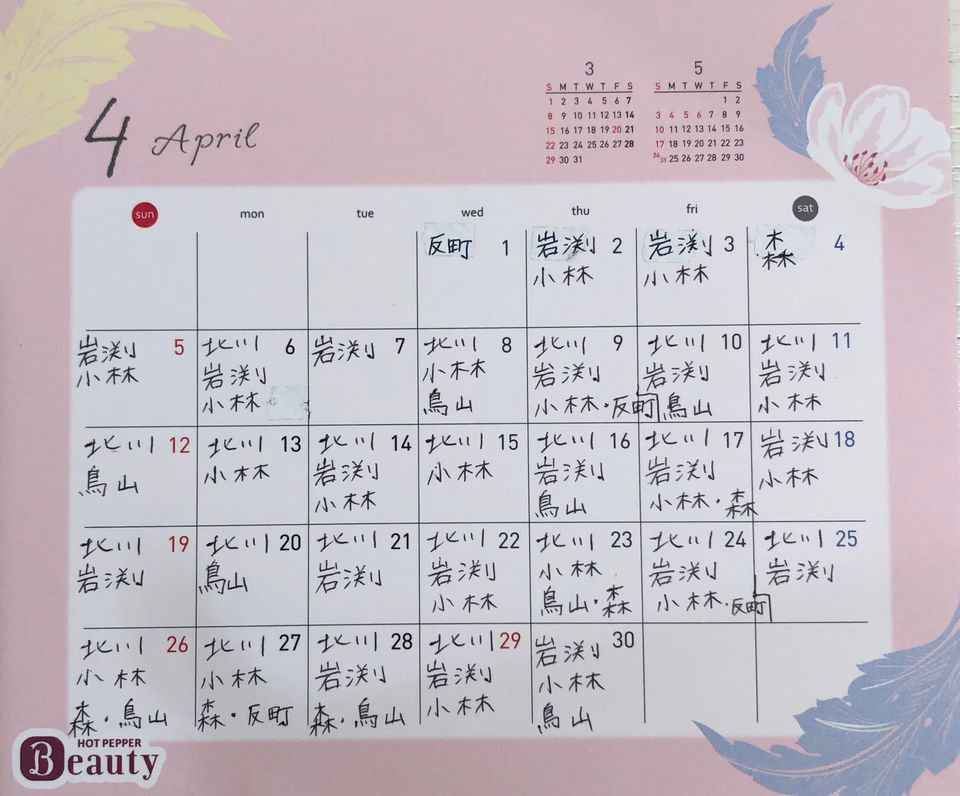 4 April
3
S M T W T F S
1 2 3 4 5 6 7
8 9 10 11 12 13 14
15 16 17 18 19 20 21
22 23 24 25 26 27 28
29 30 31
5
S M T W T F S
1 2
3 4 5 6 7 8 9
10 11 12 13 14 15 16
17 18 19 20 21 22 23
24/31 25 26 27 28 29 30
sun mon tue wed thu fri sat
反町 1
岩渕 2
小林
岩渕 3
小林
森 4
岩渕 5
小林
北川 6
岩渕
小林
岩渕 7
北川 8
小林
鳥山
北川 9
岩渕
小林・反町
北川 10
岩渕
鳥山
北川 11
岩渕
小林
北川 12
鳥山
北川 13
小林
北川 14
岩渕
小林
北川 15
小林
北川 16
岩渕
鳥山
北川 17
岩渕
小林・森
岩渕 18
小林
北川 19
岩渕
北川 20
鳥山
北川 21
岩渕
北川 22
岩渕
小林
北川 23
小林
鳥山・森
北川 24
岩渕
小林・反町
北川 25
岩渕
北川 26
小林
森・鳥山
北川 27
小林
森・反町
北川 28
岩渕
森・鳥山
北川 29
岩渕
小林
岩渕 30
小林
鳥山
HOT PEPPER
Beauty